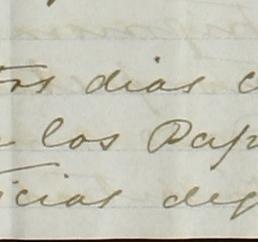 tos dias c
los Pap
icias dep